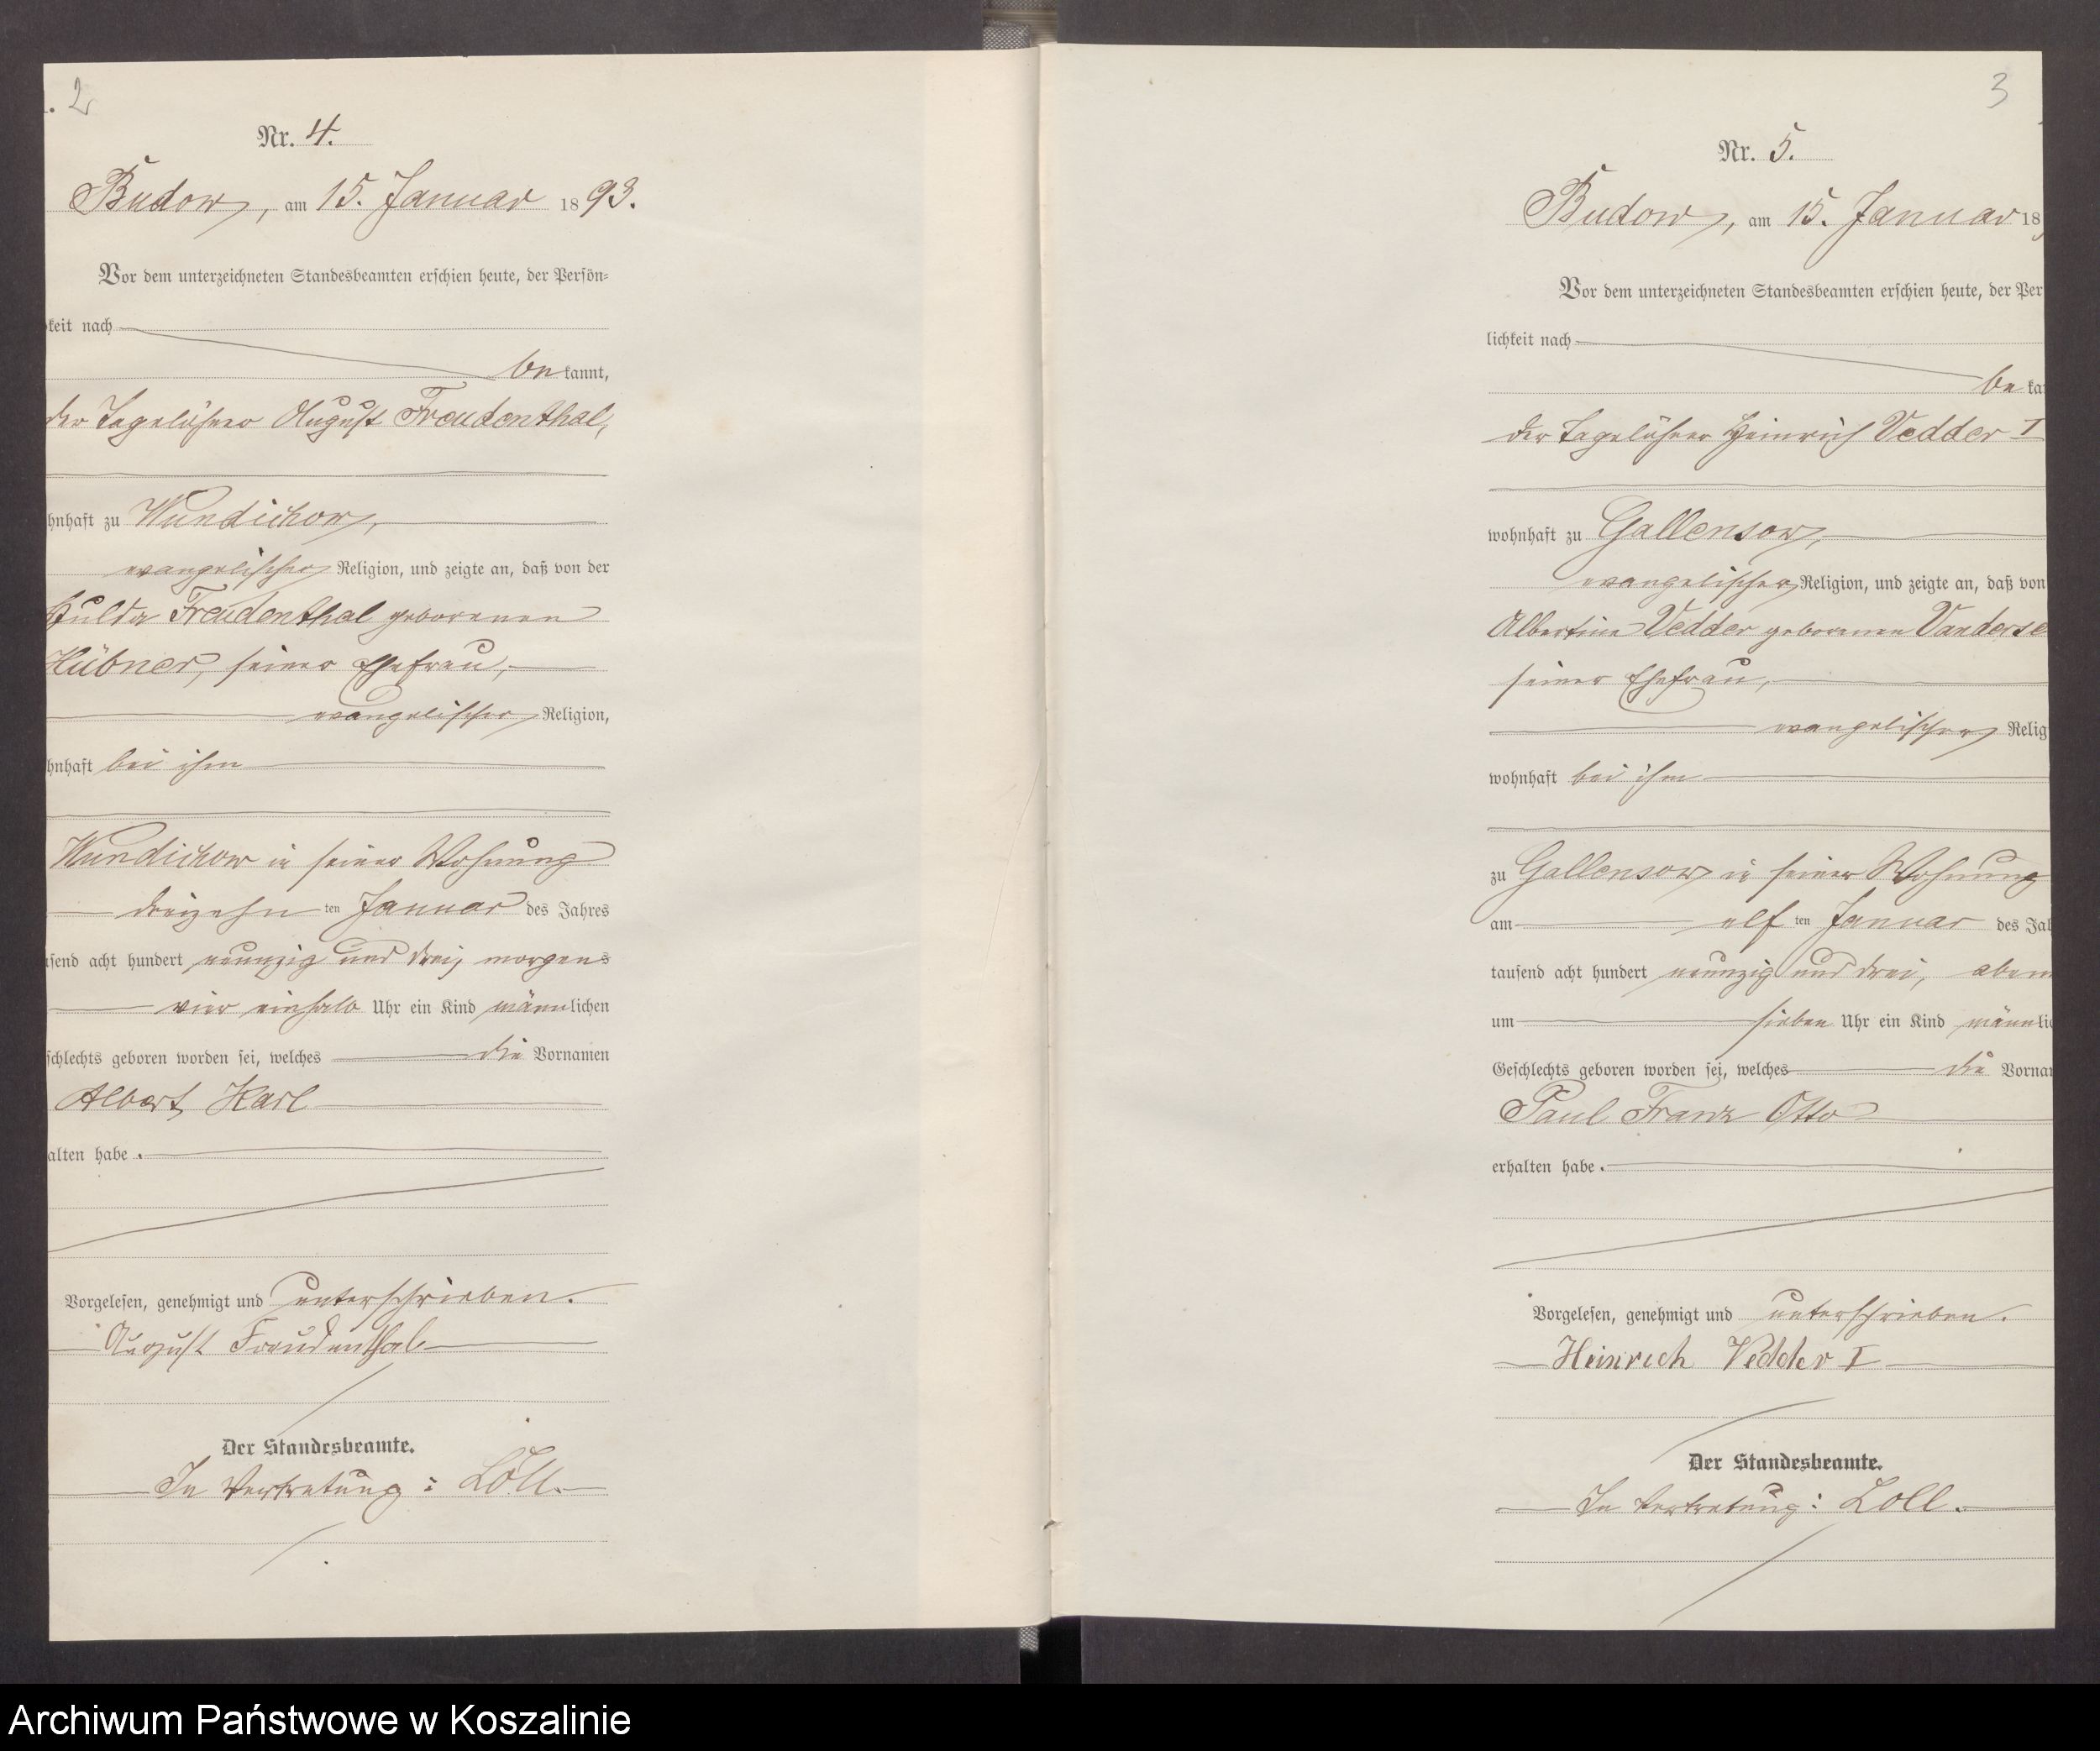 2
Nr. 4.
Budow, am 15. Januar 1893.
Vor dem unterzeichneten Standesbeamten erschien heute, der Persön=
keit nach
be kannt,
der Tagelöhner August Freudenthal,
hnhaft zu Wundichow,
evangelischer Religion, und zeigte an, daß von der
Hulda Freudenthal geborenen
Hübner, seiner Ehefrau,
evangelischer Religion,
hnhaft bei ihm
Wundichow in seiner Wohnung
dreizehn ten Januar des Jahres
usend acht hundert neunzig und drei, morgens
vier einhalb Uhr ein Kind männlichen
schlechts geboren worden sei, welches die Vornamen
Albert Karl
alten habe.
Vorgelesen, genehmigt und unterschrieben.
August Freudenthal
Der Standesbeamte.
In Vertretung: Löll.
3
Nr. 5.
Budow, am 15. Januar 18
Vor dem unterzeichneten Standesbeamten erschien heute, der Per
lichkeit nach
be ka
der Tagelöhner Heinrich Vedder I
wohnhaft zu Gallensow,
evangelischer Religion, und zeigte an, daß von
Albertine Vedder geborenen Vanderse
seiner Ehefrau,
evangelischer Relig
wohnhaft bei ihm
zu Gallensow in seiner Wohnung
am elf ten Januar des Jah
tausend acht hundert neunzig und drei, aben
um sieben Uhr ein Kind männlic
Geschlechts geboren worden sei, welches die Vornam
Paul Franz Otto
erhalten habe.
Vorgelesen, genehmigt und unterschrieben.
Heinrich Vedder I
Der Standesbeamte.
In Vertretung: Loll.
Archiwum Państwowe w Koszalinie